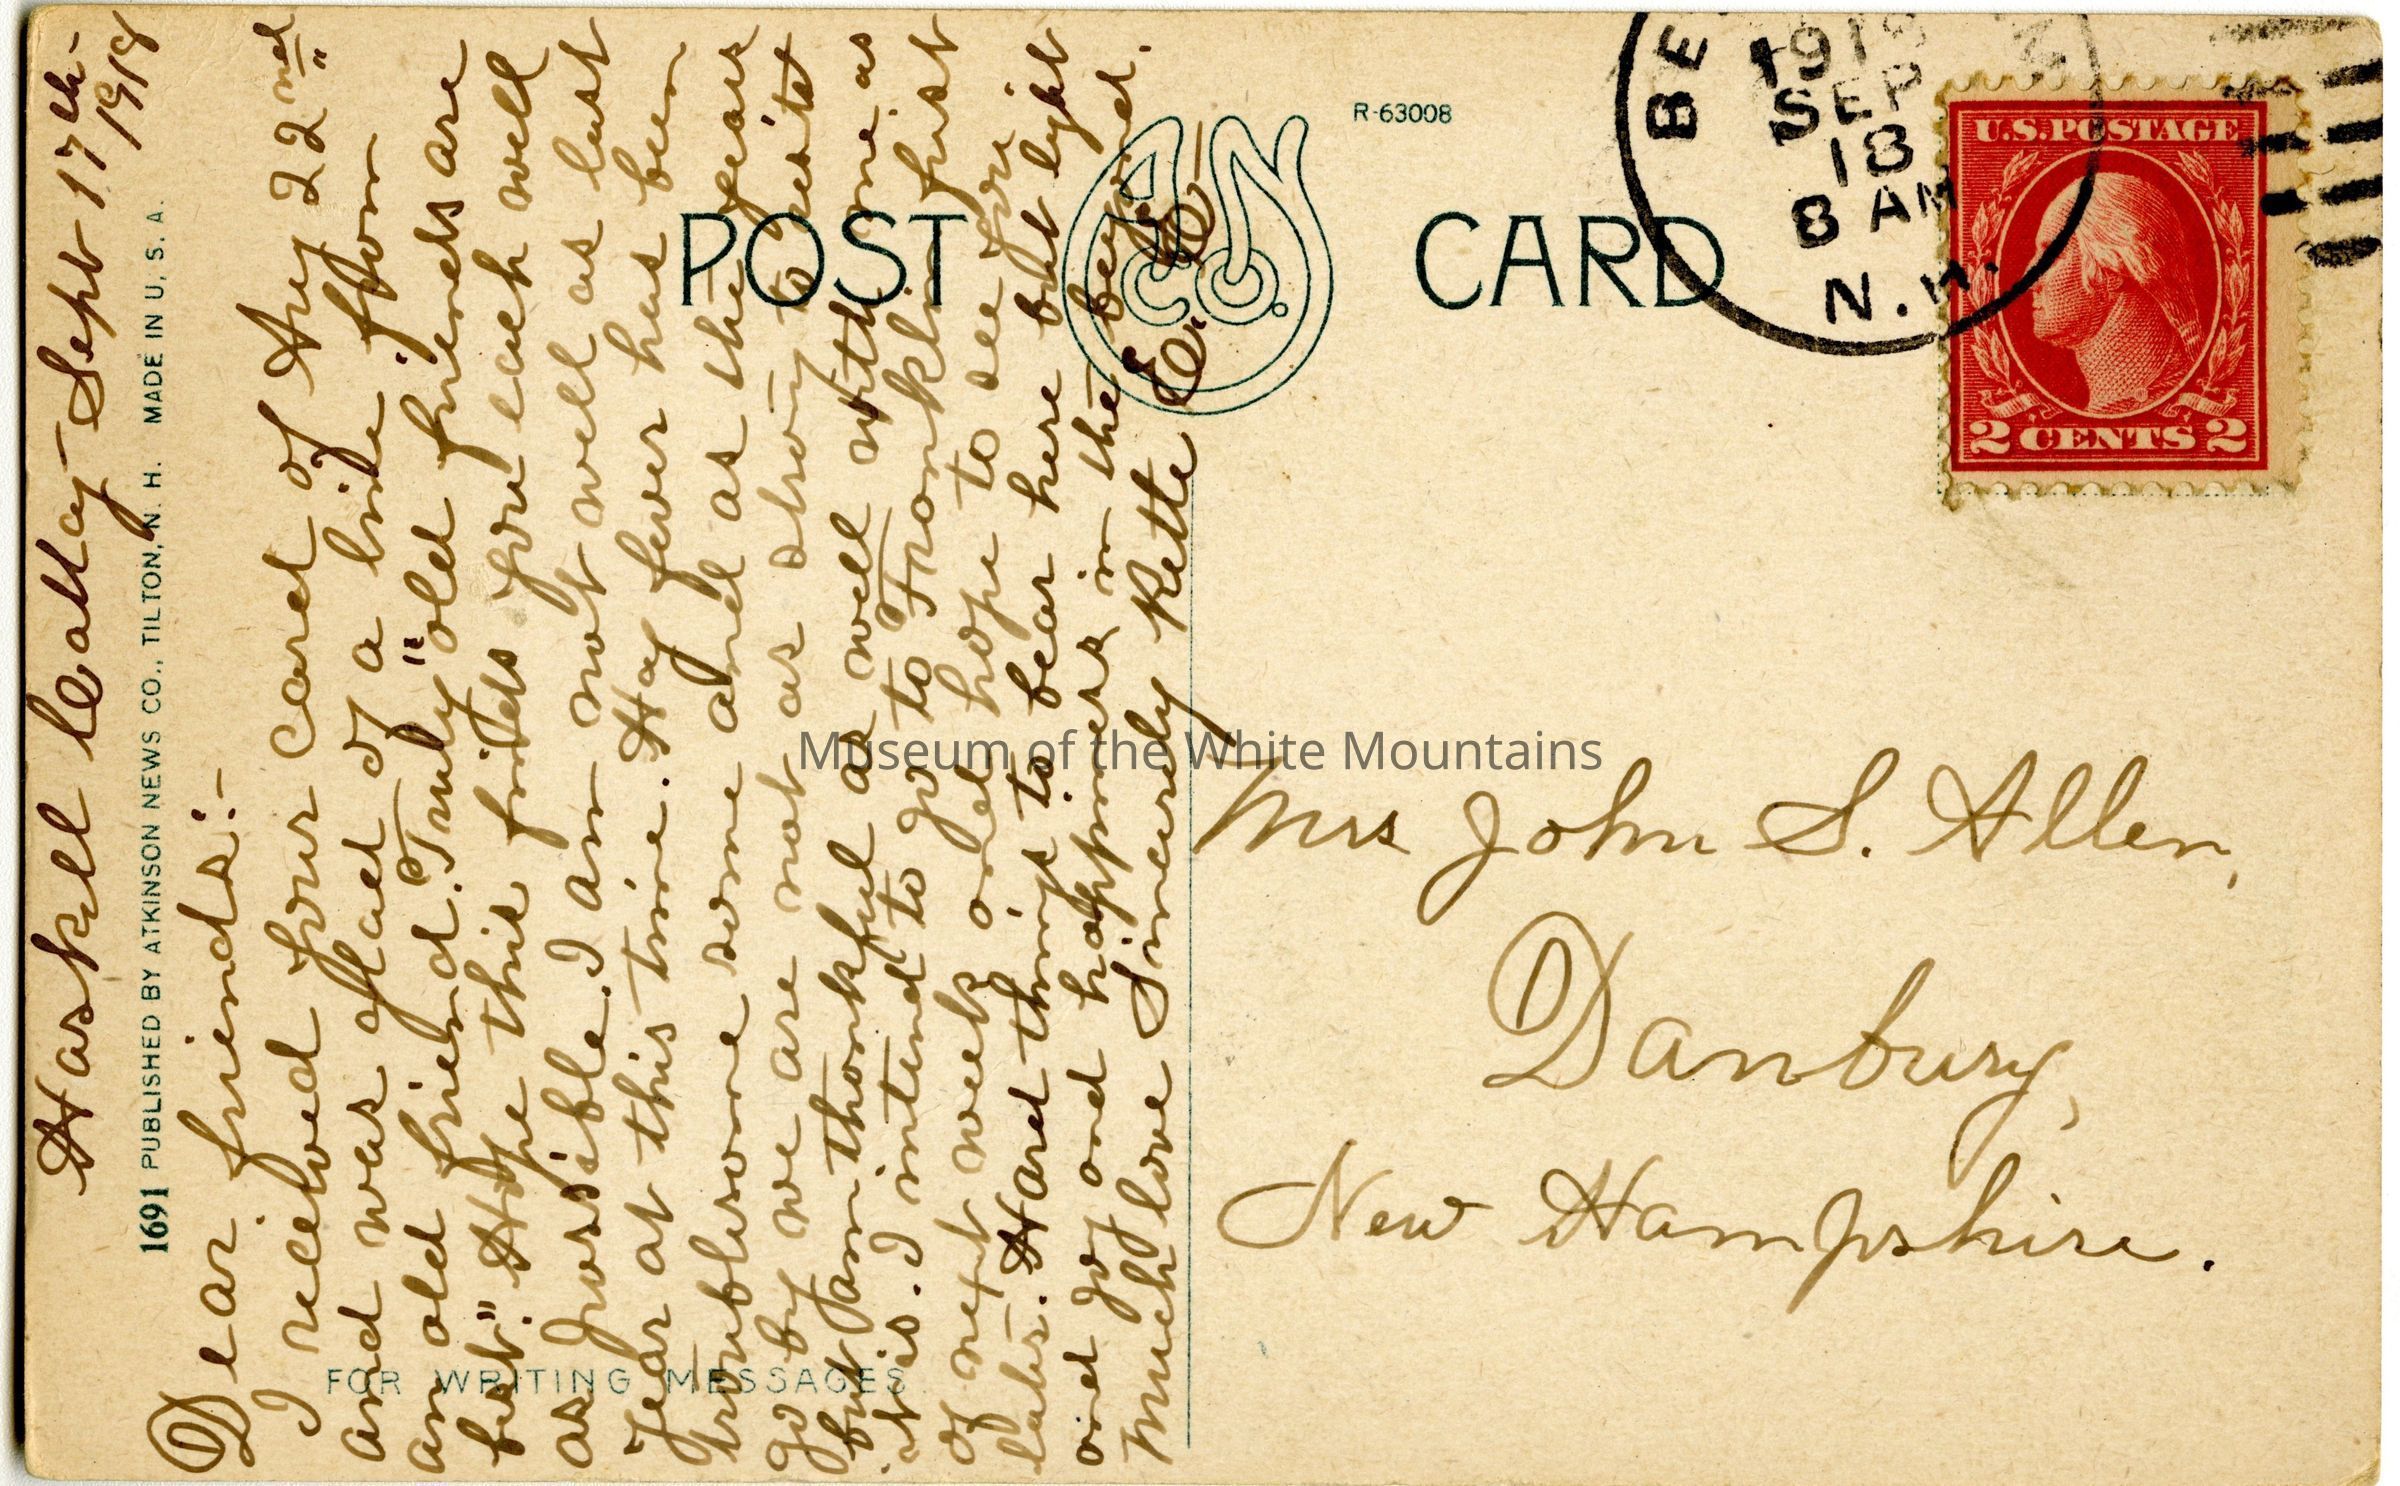 Haskell Cottage - Sept 17th - 1918
Dear friends:-
I received your card of Aug 22nd"
and was glad of a line from
an old friend. Truly "old friends are
best." Hope this finds you each well
as possible. I am not well as last
year at this time. Hay fever has been
troublesome some and as the years
go by we are not as strong to resist
but am thankful as well with me as
it is. I intend to go to Franklin first
of next week and hope to see you
later. Hard things to bear here but light
and joy and happiness in the beyond.
Much love Sincerely Ketté E.
1691 PUBLISHED BY ATKINSON NEWS CO., TILTON, N. H. MADE IN U. S. A.
FOR WRITING MESSAGES
POST CARD
A N CO.
R-63008
BE
1918
SEP
18
8 AM
N.H.
U.S. POSTAGE
2 CENTS 2
Museum of the White Mountains
Mrs John S. Allen,
Danbury,
New Hampshire.